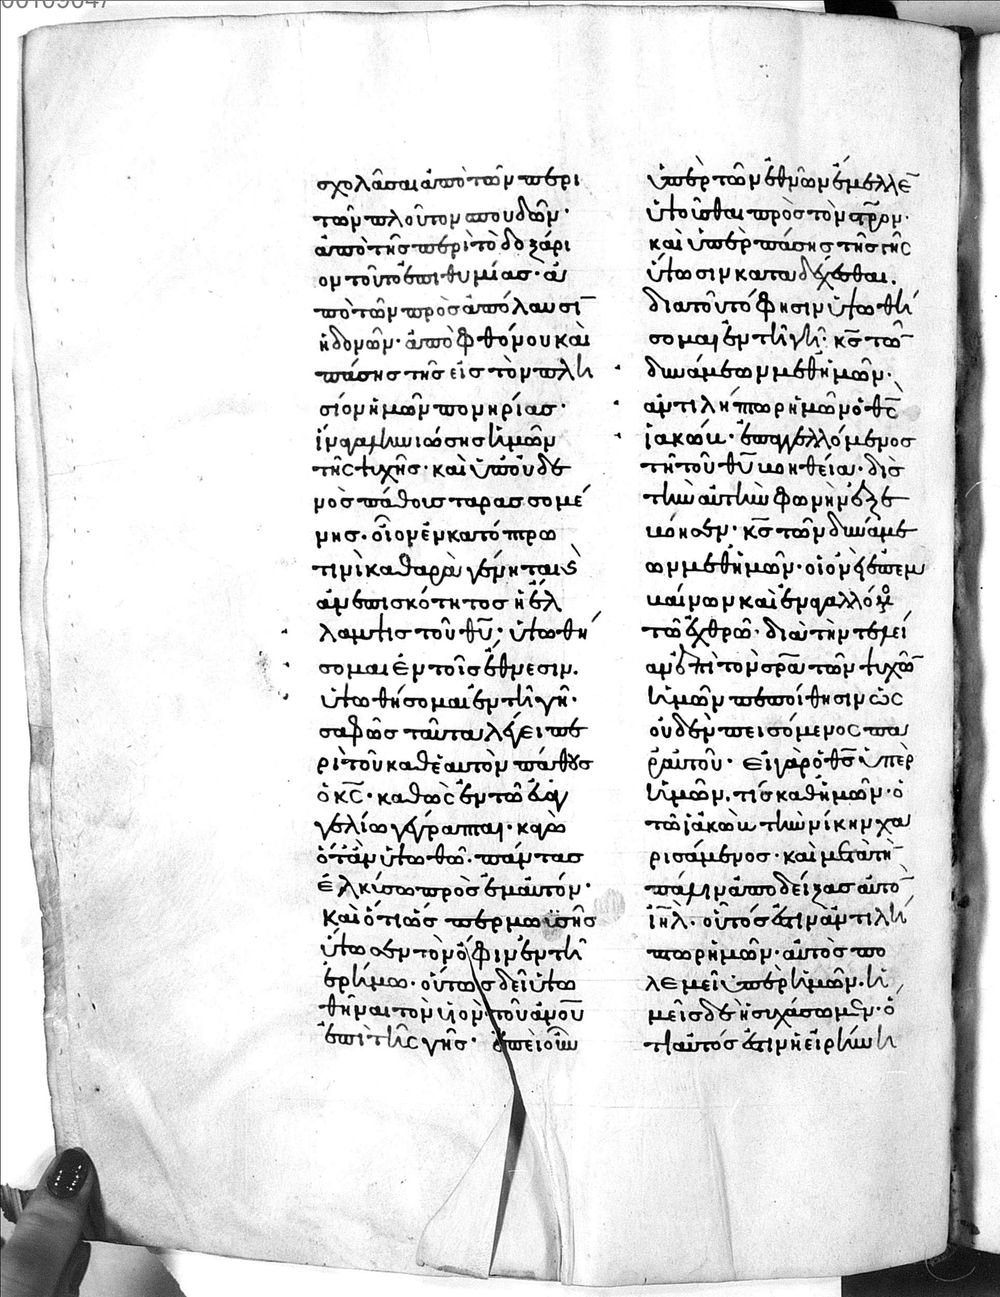 σχολᾶσαι ἀπὸ τῶν περι
τῶν πλοῦτον σπουδῶν·
ἀπὸ τῆς περὶ τὸ δοξάρι
ον τοῦτο ἐπιθυμίας· ἀ
πὸ τῶν πρὸς ἀπόλαυσῑ
ἡδονῶν· ἀπὸ φθόνου καὶ
πάσης τῆς εἰς τὸν πλη
σίον ἡμῶν πονηρίας·
ἵνα γαληνιώσης ἡμῶν
τῆς ψυχῆς· καὶ ὑπ' οὐδε
νὸς πάθους ταρασσομέ
νης· οἷον ἐν κατόπτρω
τινὶ καθαρὰ γένηται καὶ
ἀνεπισκότητος ἡ ἔλ
λαμψις τοῦ θῡ· ὑψωθή
σομαι ἐν τοῖς ἔθνεσιν.
ὑψωθήσομαι ἐν τῆ γῆ·
σαφῶς ταῦτα λέγει πε
ρὶ τοῦ καθ' ἑαυτὸν πάθους
ὁ κς̄· καθὼς ἐν τῶ εὐαγ
γελίω γέγραπται· κἀγὼ
ὅταν ὑψωθῶ· πάντας
ἑλκύσω πρὸς ἐμαυτόν·
καὶ ὅτι ὡς περ μωϋσῆς
ὕψωσεν τὸν ὄφιν ἐν τῆ
ἐρήμω· οὕτως δεῖ ὑψω
θῆναι τὸν υἱὸν τοῦ ἀνοῡ
ἐπὶ τῆς γῆς· ἐπεὶ οὖν
ὑπὲρ τῶν ἐθνῶν ἔμελλε̄
ὑψοῦσθαι πρὸς τὸν στρ̄ον·
καὶ ὑπὲρ πάσης τῆς γῆς
ὕψωσιν καταδέχεσθαι.
διὰ τοῦτό φησιν ὑψωθή
σομαι ἐν τῆ γῆ· κς̄ τῶ̄
δυνάμεων μεθ' ἡμῶν·
ἀντιλήπτωρ ἡμῶν ὁ θς̄
ἰακώβ· ἐπαγγελλόμενος
τῆ τοῦ θῡ βοηθεία· δὶς
τὴν αὐτὴν φωνὴν ἐξε
βόησεν· κς̄ τῶν δυνάμε
ων μεθ' ἡμῶν· οἱονεὶ ἐπεμ
βαίνων καὶ ἐναλλόμενος
τῶ ἐχθρῶ· διὰ τὴν τελεί
αν ἐπὶ τὸν σρ̄α τῶν ψυχῶ̄
ἡμῶν πεποίθησιν ὡς
οὐδὲν πεισόμενος παρ'
αὐτοῦ· εἰ γὰρ ὁ θς̄ ὑπὲρ
ἡμῶν. τίς καθ' ἡμῶν· ὁ
τῶ ἰακὼβ τὴν νίκην χα
ρισάμενος· καὶ μετὰ τὴ̄
πάλην ἀποδείξας αὐτὸ̄
ιη̄λ· οὗτός ἐστιν ἀντιλή
πτωρ ἡμῶν· αὐτὸς πο
λεμεῖ ὑπὲρ ἡμῶν· ἡ
μεῖς δὲ ἡσυχάσωμεν· ὅ
τι αὐτός ἐστιν ἡ εἰρήνη ἡ